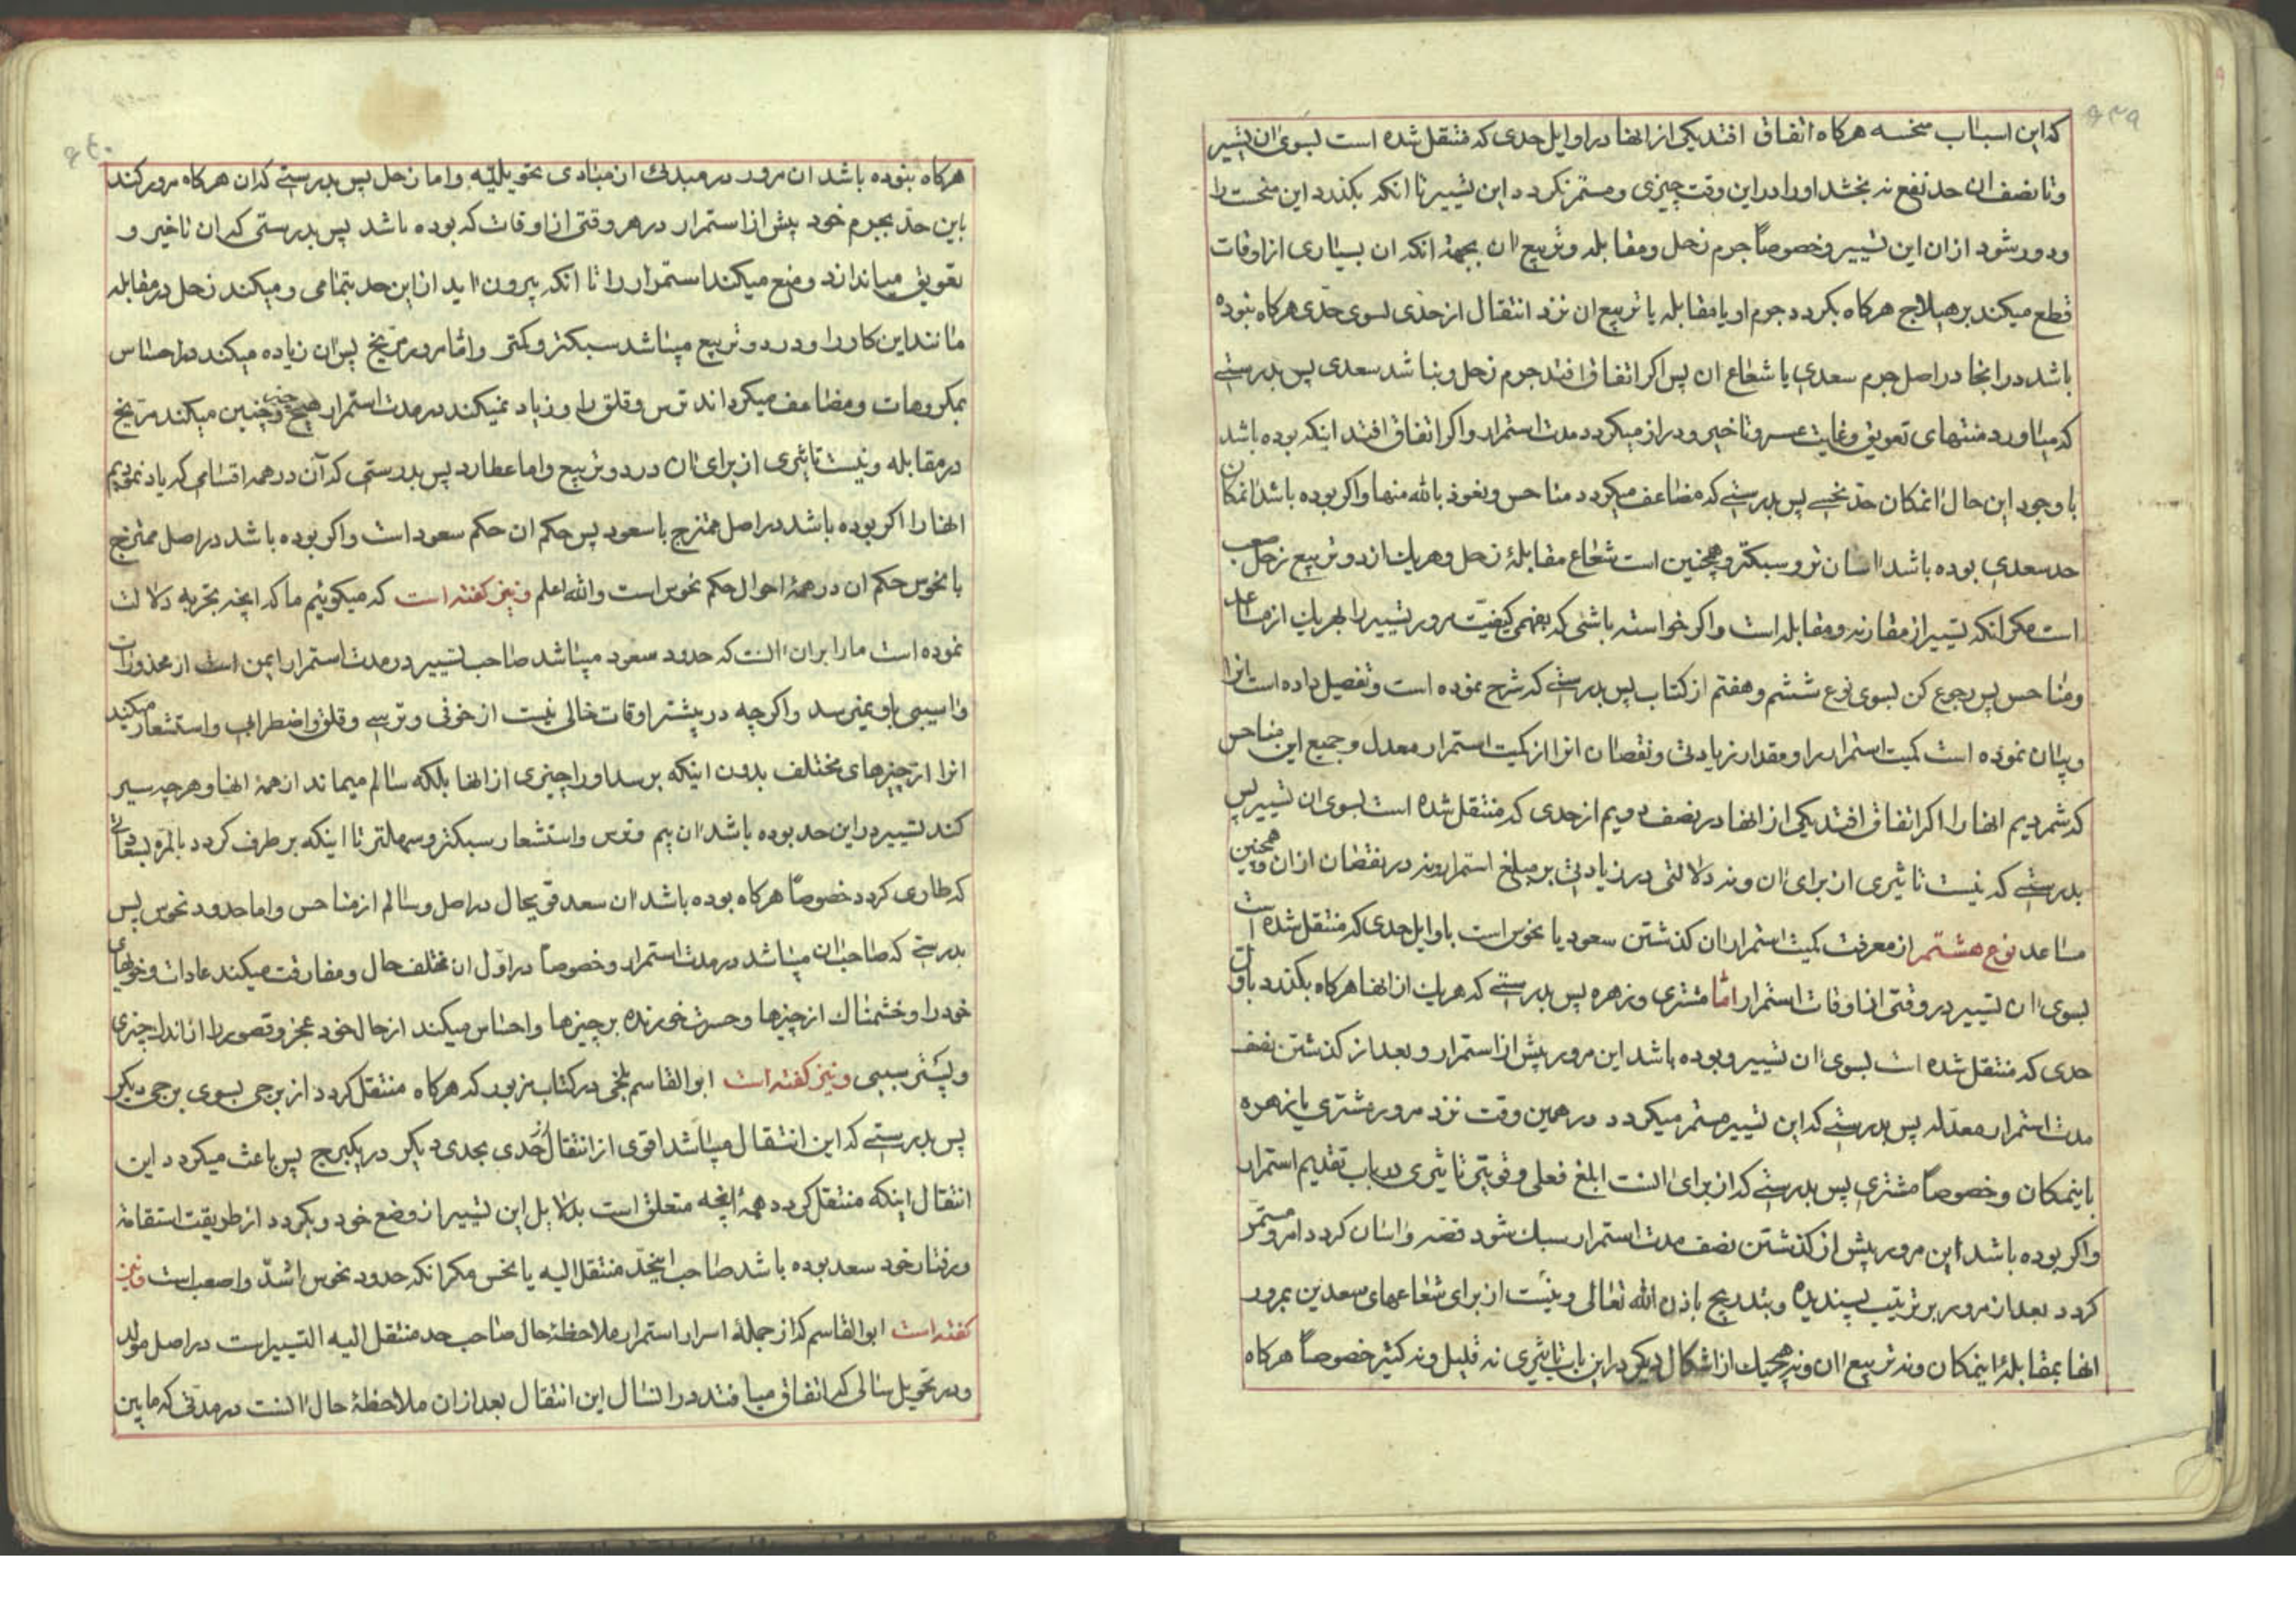 که این اسباب منحسه هرکاه اتفاق افتد یکی از انها در اوایل حدی که منتقل شده است بسوی ان تسییر
و تا نصف ان حد نفع نه بخشد او را در این وقت چیزی و مستمر نکردد این تسییر تا انکه بکذرد این منحست را
و دور شود از ان این تسییر و خصوصاً جرم زحل و مقابله و تربیع ان بجهة انکه ان بسیاری از اوقات
قطع میکند بر هیلاج هرکاه بکردد جرم او یا مقابله یا تربیع ان نزد انتقال از حدّی بسوی حدّی هرکاه نبوده
باشد در انجا در اصل جرم سعدی یا شعاع ان پس اکر اتفاق افتد جرم زحل و نباشد سعدی پس بدرستی
که میاورد منتهای تعویق و غایت عسر و تاخیر و دراز میکردد مدت استمرار و اکر اتفاق افتد اینکه بوده باشد
با وجود این حال انمکان حدّ نحسی پس بدرستی که مضاعف میکردد مناحس و نعوذ بالله منها و اکر بوده باشد انمکان
حد سعدی بوده باشد اسان تر و سبکتر و همچنین است شعاع مقابلهٔ زحل و هریك از دو تربیع زحل صعب
است مکر انکه تسییر از مقارنه و مقابله است و اکر خواسته باشی که بفهمی کیفیّت مرور تسییر را بهریك از مساعد
و مناحس پس رجوع کن بسوی نوع ششم و هفتم از کتاب پس بدرستی که شرح نموده است و تفصیل داده است انرا
و بیان نموده است کمیت استمرار را و مقدار زیادتی و نقصان انرا از کمیت استمرار معدل و جمیع این مناحس
که شمردیم انها را اکر اتفاق افتد یکی از انها در نصف دویم از حدی که منتقل شده است بسوی ان تسییر پس
بدرستی که نیست تاثیری از برای ان و نه دلالتی در زیادتی بر مبلغ استمرار و نه در نقصان از ان و همچنین
مساعد نوع هشتم از معرفت کمیت استمرار ان کذشتن سعود یا نحوس است باوایل حدی که منتقل شده است
بسوی ان تسییر در وقتی از اوقات استمرار امّا مشتری و زهره پس بدرستی که هریك از انها هرکاه بکذرد باول
حدی که منتقل شده است بسوی ان تسییر و بوده باشد این مرور پیش از استمرار و بعد از کذشتن نصف
مدت استمرار معدّله پس بدرستی که این تسییر مستمر میکردد در همین وقت نزد مرور مشتری یا زهره
باینمکان و خصوصاً مشتری پس بدرستی که از برای انست ابلغ فعلی و قویتر تاثیری در باب تقدیم استمرار
و اکر بوده باشد این مرور پیش از کذشتن نصف مدت استمرار سبك شود قصّه و اسان کردد امر و مستمرّ
کردد بعد از مرور بر ترتیب پسندیده و بتدریج باذن الله تعالی و نیست از برای شعاعهای سعدین بمرور
انها بمقابلهٔ اینمکان و نه تربیع ان و نه هیچیك از اشکال دیکر در این باب تاثیری نه قلیل و نه کثیر خصوصاً هرکاه
هرکاه نبوده باشد ان مرور در مبدئی از مبادی تحویلیّه و اما زحل پس بدرستی که ان هرکاه مرور کند
باین حدّ بجرم خود پیش از استمرار در هر وقتی از اوقات که بوده باشد پس بدرستی که ان تاخیر و
تعویق میاندازد و منع میکند استمرار را تا انکه بیرون اید از این حد بتمامی و میکند زحل در مقابله
مانند این کار را و در دو تربیع میباشد سبکتر و کمتر و امّا مرور مرّیخ پس ان زیاده میکند در احساس
بمکروهات و مضاعف میکرداند ترس و قلق را و زیاد نمیکند در مدت استمرار هیچ چیز و چنین میکند مریخ
در مقابله و نیست تاثیری از برای ان در دو تربیع و اما عطارد پس بدرستی که آن در همه اقسامی که یاد نمودیم
انها را اکر بوده باشد در اصل ممتزج با سعود پس حکم ان حکم سعود است و اکر بوده باشد در اصل ممتزج
با نحوس حکم ان در همهٔ احوال حکم نحوس است و الله اعلم و نیز کفته است که میکوئیم ما که انچه تجربه دلالت
نموده است ما را بران انست که حدود سعود میباشد صاحب تسییر در مدت استمرار ایمن است از محذورات
و اسیبی باو نمیرسد و اکرچه در بیشتر اوقات خالی نیست از خوفی و ترسی و قلق و اضطرابی و استشعار میکند
انرا از چیزهای مختلف بدون اینکه برسد او را چیزی از انها بلکه سالم میماند از همهٔ انها و هرچه سیر
کند تسییر در این حد بوده باشد ان بیم و ترس و استشعار سبکتر و سهلتر تا اینکه بر طرف کردد بالمرّه بسعادتی
که طاری کردد خصوصاً هرکاه بوده باشد ان سعد قویحال در اصل و سالم از مناحس و اما حدود نحوس پس
بدرستی که صاحب ان میباشد در مدت استمرار و خصوصاً در اوّل ان مختلف حال و مفارقت میکند عادات و خویهای
خود را و خشمناك از چیزها و حسرت خورنده بر چیزها و احساس میکند از حال خود عجز و قصور را از اندك چیزی
و پستتر سببی و نیز کفته است ابوالقاسم بلخی در کتاب مزبور که هرکاه منتقل کردد از برجی بسوی برجی دیکر
پس بدرستی که این انتقال میباشد اقوی از انتقال از حدی بحدی دیکر در یکبرج پس باعث میکردد این
انتقال اینکه منتقل کردد همهٔ انچه متعلق است بدلایل این تسییر از وضع خود و بکردد از طریقت استقامة
و رفتار خود سعد بوده باشد صاحب اینحدّ منتقل الیه یا نحس مکر انکه حدود نحوس اشدّ و اصعب است و نیز
کفته است ابوالقاسم که از جملهٔ اسرار استمرار ملاحظهٔ حال صاحب حد منتقل الیه التسییر است در اصل مولد
و در تحویل سالی که اتفاق میافتد در انسال این انتقال بعد از ان ملاحظهٔ حال انست در مدتی که مابین